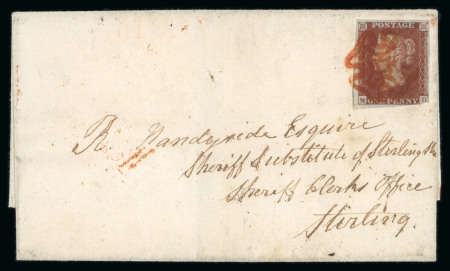 POSTAGE
M D
ONE PENNY
R. Handyside Esquire
Sheriff Substitute of Sterling Sh
Sheriff Clerks Office
Sterling.